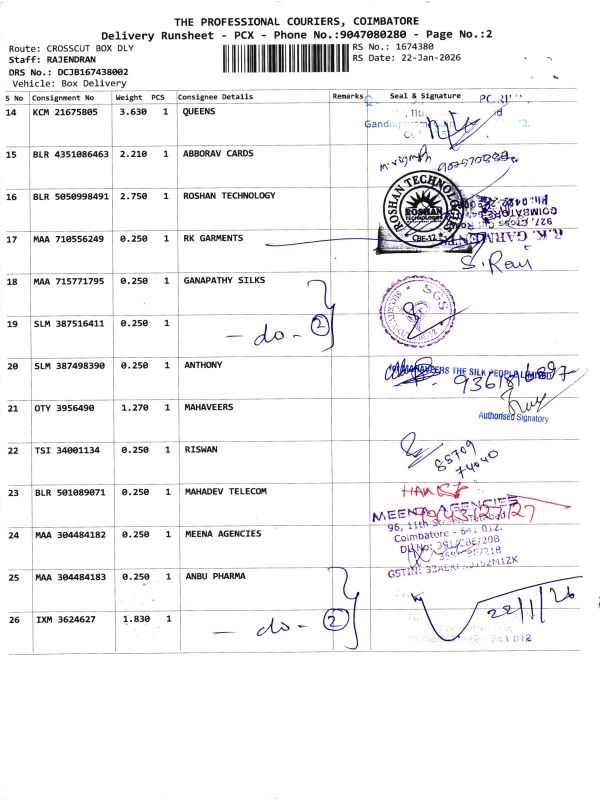 THE PROFESSIONAL COURIERS, COIMBATORE
Delivery Runsheet - PCX - Phone No.:9047080280 - Page No.:2
Route: CROSSCUT BOX DLY
RS No.: 1674380
Staff: RAJENDRAN
RS Date: 22-Jan-2026
DRS No.: DCJB167438002
Vehicle: Box Delivery
S No Consignment No Weight PCS Consignee Details Remarks Seal & Signature
14 KCM 21675805 3.630 1 QUEENS
15 BLR 4351086463 2.210 1 ABBORAV CARDS
16 BLR 5050998491 2.750 1 ROSHAN TECHNOLOGY
ROSHAN TECHNOLOGIES
ROSHAN
CBE-12
17 MAA 710556249 0.250 1 RK GARMENTS
R.K. GARMENTS
S. Ravi
18 MAA 715771795 0.250 1 GANAPATHY SILKS
SGS
19 SLM 387516411 0.250 1
- do - 2
20 SLM 387498390 0.250 1 ANTHONY
MAHAVEERS THE SILK PEOPLE LIMITED
21 OTY 3956490 1.270 1 MAHAVEERS
Authorised Signatory
22 TSI 34001134 0.250 1 RISWAN
88709
74040
23 BLR 501089071 0.250 1 MAHADEV TELECOM
MEENA AGENCIES
96, 11th
Coimbatore - 641 012.
24 MAA 304484182 0.250 1 MEENA AGENCIES
25 MAA 304484183 0.250 1 ANBU PHARMA
22/1/26
26 IXM 3624627 1.830 1
- do - 2